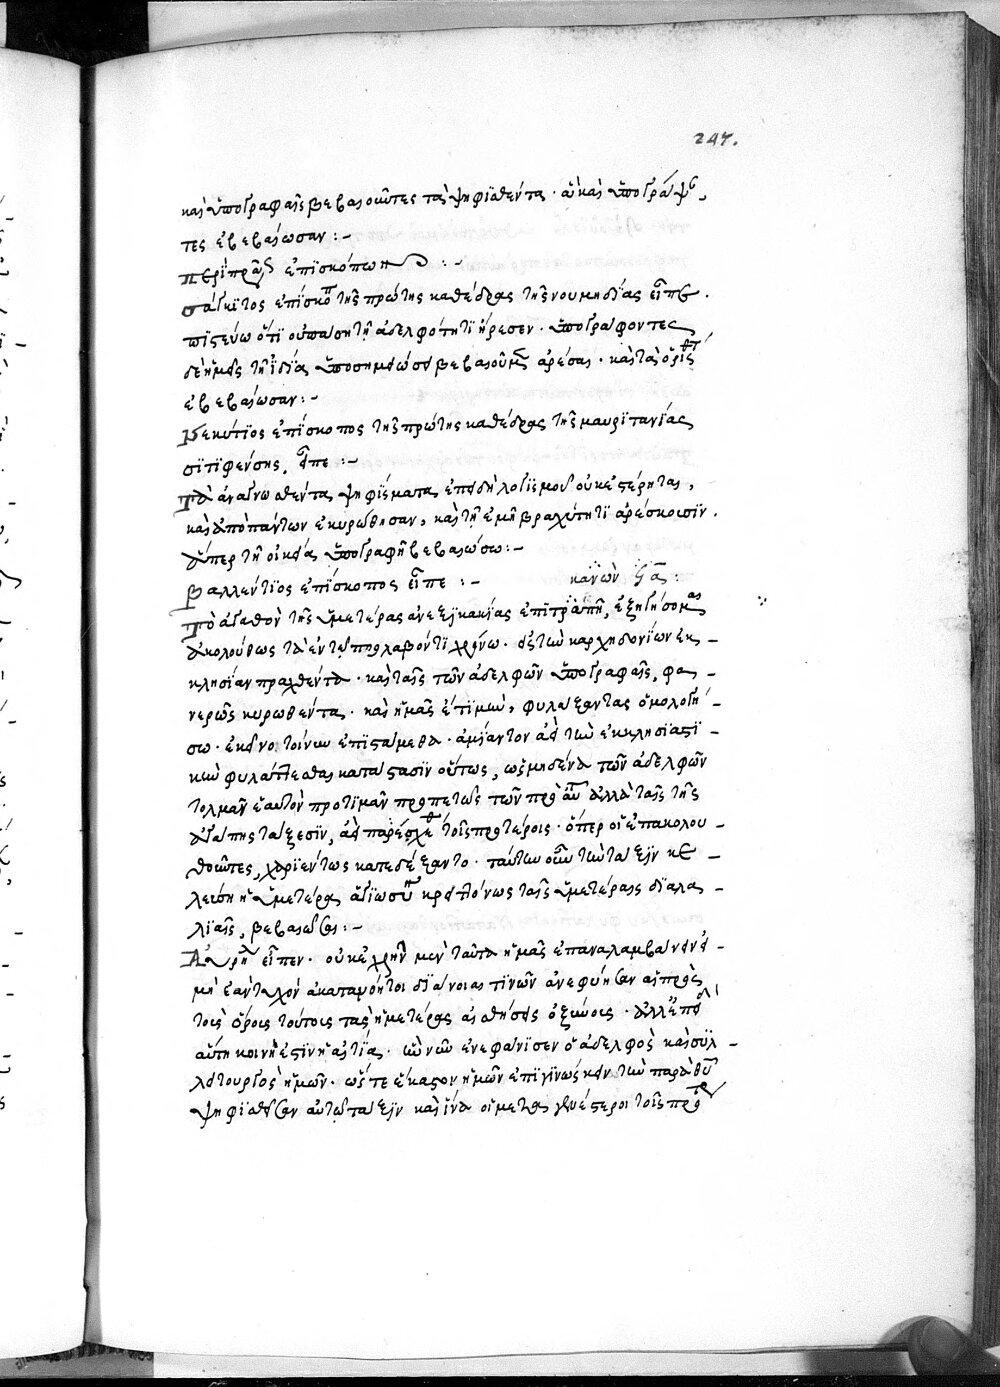 247.
καὶ ὑπογραφαῖς βεβαιοῦντες τὰ ψηφισθέντα. ἃ καὶ ὑπογράψαν
τες ἐβεβαίωσαν :-
περὶ πρά ἐπισκόπων :-
σάγκιτος ἐπίσκοπ τῆς πρώτης καθέδρας τῆς νουμηδίας εἶπε.
πιστεύω ὅτι σύμπασῃ τῇ ἀδελφότητι ἤρεσεν. ὑπογράφοντες
δὲ ἡμεῖς τῇ ἰδίᾳ ὑποσημειώσει βεβαιοῦμεν ἀρέσαι. καὶ τὰ ὁρισθέντ
ἐβεβαίωσαν :-
Βεκύτιος ἐπίσκοπος τῆς πρώτης καθέδρας τῆς μαυριτανίας
σιτιφένσης, εἶπε :-
Τὰ ἀναγνωσθέντα ψηφίσματα, ἐπειδὴ λογισμοῦ οὐκ ἐστέρηται,
καὶ ἀπὸ πάντων ἐκυρώθησαν, καὶ τῇ ἐμῇ βραχύτητι ἀρέσκουσιν.
ἅπερ τῇ οἰκείᾳ ὑπογραφῇ βεβαιώσω :-
Βαλλέντιος ἐπίσκοπος εἶπε :- κανὼν ϟα :
Τὸ ἀγαθὸν τῆς ὑμετέρας ἀνεξικακίας ἐπιτράπῃ, ἐξηγήσομαι
ἀκολούθως τὰ ἐν τῷ προλαβόντι χρόνω. εἰς τὴν καρχηδονίων ἐκ -
κλησίαν πραχθέντα. καὶ ταῖς τῶν ἀδελφῶν ὑπογραφαῖς, φα -
νερῶς κυρωθέντα. καὶ ἡμᾶς ἔτι μὴν, φυλάξαντας ὁμολογή
σω. ἐκεῖνο τοίνυν ἐπιστάμεθα. ἀμίαντον ἀεὶ τὴν ἐκκλησιαστι -
κὴν φυλάττεσθαι κατάστασιν οὕτως, ὥς μηδένα τῶν ἀδελφῶν
τολμᾶν ἑαυτὸν προτιμᾶν προπετῶς τῶν πρὸ αὐτοῦ ἀλλὰ ταῖς τῆς
ἀγάπης τάξεσιν, ἀεὶ παρέσχε τοῖς προτέροις. ὅπερ οἱ ἐπακολου -
θοῦντες, χαριέντως κατεδέξαντο. ταύτην οὖν τὴν τάξιν κε -
λεύσῃ ἡ ὑμετέρα ἁγιωσύνη κρειττόνως ταῖς ὑμετέραις διαλα -
λίαις, βεβαιῶσαι :-
Αὐρήλιος εἶπεν. οὐκ ἐχρῆν μὲν ταῦτα ἡμᾶς ἐπαναλαμβάνειν εἰ -
μὴ ἐὰν τυχὸν ἀκατανόητοι διάνοιαι τινῶν ἀνεφύησαν αἱ πρὸς
τοῖς ὅροις τούτοις τὰς ἡμετέρας αἰσθήσεις ὀξύνοις. ἀλλ' ἐπειδὴ
αὕτη κοινή ἐστιν ἡ αἰτία. ἣν νῦν ἐνεφάνισεν ὁ ἀδελφὸς καὶ συλ -
λειτουργὸς ἡμῶν. ὥστε ἕκαστον ἡμῶν ἐπιγινώσκειν τὴν παρὰ θεοῦ
ψηφισθεῖσαν αὐτῷ τάξιν καὶ ἵνα οἱ μεταγενέστεροι τοῖς προτέ